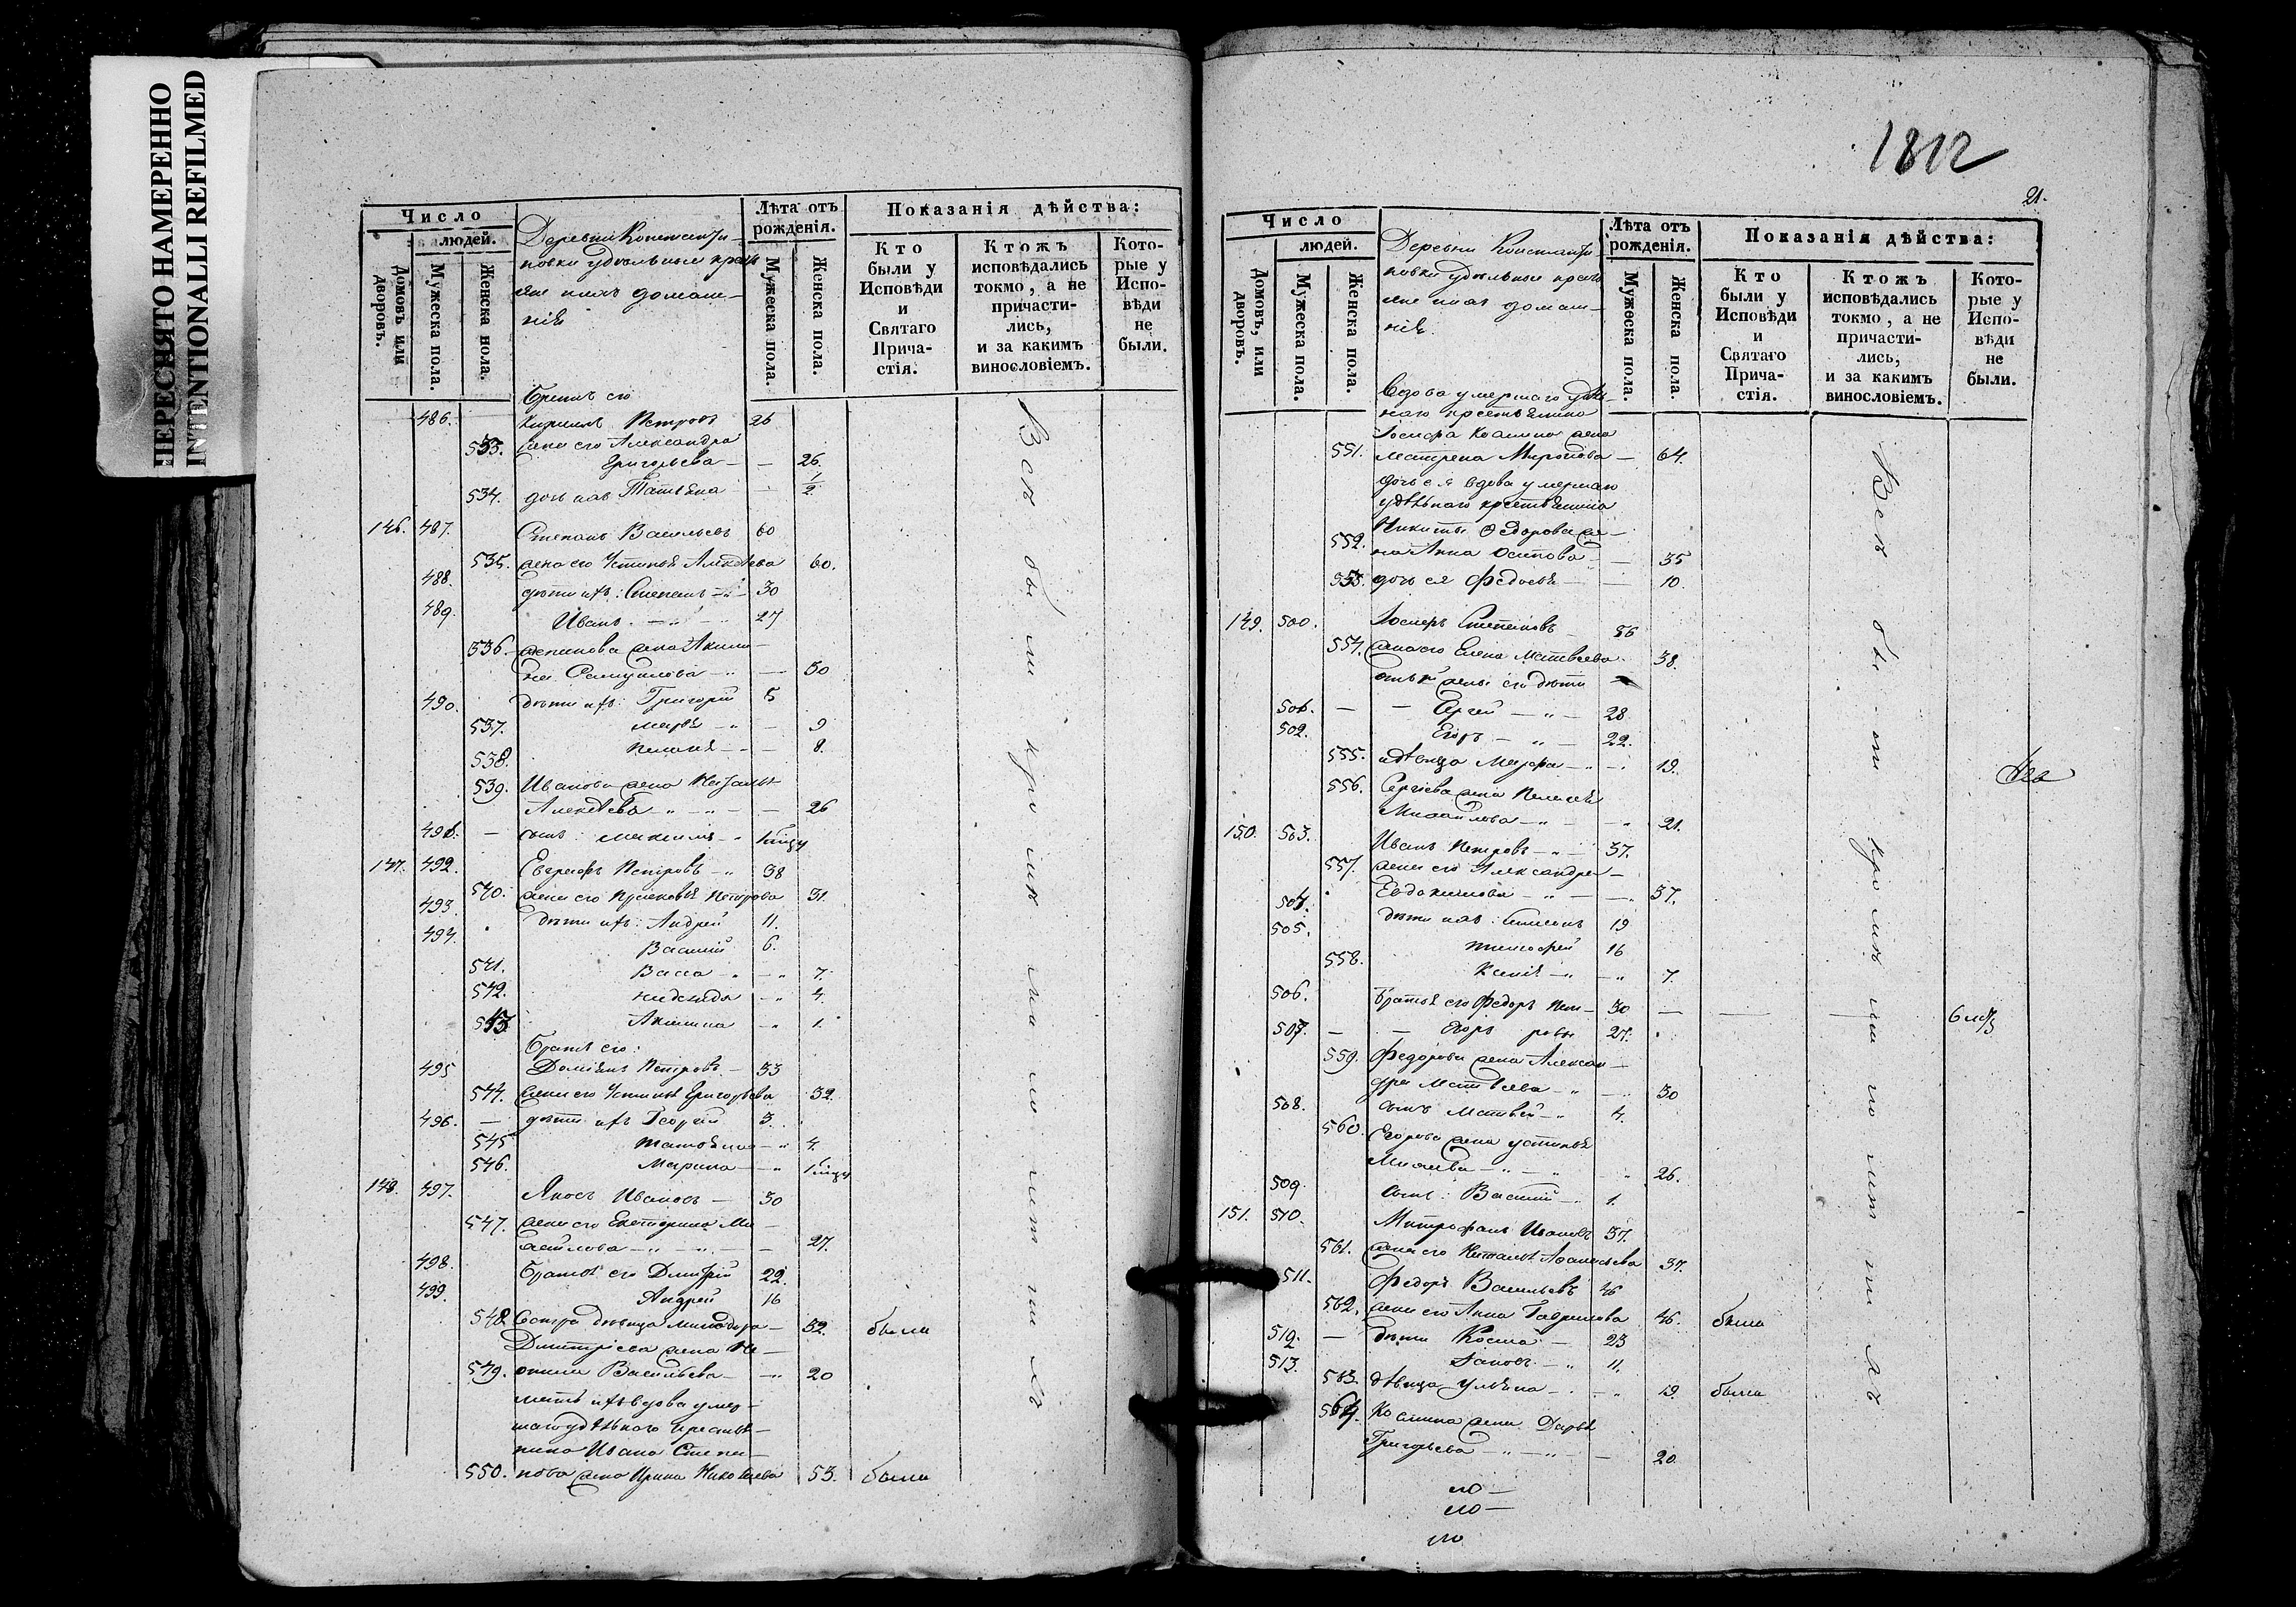 ПЕРЕСНЯТО НАМЕРЕННО
INTENTIONALLI REFILMED
Число
людей.
Домовъ или дворовъ.
Мужеска пола.
Женска пола.
Деревни Константи-
новки удѣльные кресть
яне ихъ домаш-
нiе
Лѣта отъ рожденія.
Мужеска пола.
Женска пола.
Показанія дѣйства:
Кто были у Исповѣди и Святаго Прича-стія.
Ктожъ исповѣдались токмо, а не причасти-лись, и за какимъ винословіемъ.
Кото-рые у Испо-вѣди не были.
Братъ его
486. Кириллъ Петровъ 26
533. жена его Александра
Григорьева — — 26.
534. дочь ихъ Татьяна — 1/2
146. 487. Степанъ Васильевъ 60
535. жена его Устинья Алексѣева 60.
488. дѣти ихъ: Степанъ 30
489. Иванъ 27
536. жена Акили-
на Самуилова — 30
490. дѣти ихъ: Григорій 5
537. Марья — 9
538. Пелагия — 8.
539. Иванова жена Наталья
Алексѣева — 26
491. — сынъ: Максимъ
147. 492. Евграфъ Петровъ 38
540. жена его Прасковья Петрова 31.
493. дѣти ихъ: Андрей 11.
494. Василій 6.
541. Васса — 7.
542. Надежда — 4.
543. Акилина — 1.
Братъ его:
495 Доміянъ Петровъ — 33
544. жена его Устинья Григорьева 32.
496. — дѣти ихъ Георгій 3.
545 Татьяна — 4.
546. Марина
148. 497. Яковъ Ивановъ — 30
547. жена его Екатерина Ми-
хайлова — 27.
498. Братья его Дмитрій 22.
499. Андрей 16
548. Сестра дѣвица — 32. была
Дмитріева жена
549. Васильева — 20
мать ихъ вдова умер-
шаго удѣльнаго крестья-
нина Ивана Степа-
550. нова жена Ирина Николаева 53. была
Всѣ были кромѣ малолѣтнихъ
1812
21.
Число
людей.
Домовъ, или дворовъ.
Мужеска пола.
Женска пола.
Деревни Константи
новки удѣльные кресть
яне ихъ домаш-
нiе.
Лѣта отъ рожденія.
Мужеска пола.
Женска пола.
Показанія дѣйства:
Кто были у Исповѣди и Святаго Прича-стія.
Ктожъ исповѣдались токмо, а не причасти-лись, и за какимъ винословіемъ.
Кото-рые у Испо-вѣди не были.
Вдова умершаго удѣль-
наго крестьянина
Іосифа жена
551. Матрена Миронова — 64.
дочь ея вдова умершаго
удѣльнаго крестьянина
Никиты Федорова же-
552. на Анна Осипова — 35
553. дочь ея Федосья — 10.
149. 500. Іосифъ Степановъ
554. жена его Елена Матвѣева 38.
жены его дѣти
501. — — Сергей — 28
502. Егоръ — 22.
555. дѣвица Марфа — 19.
556. Сергіева жена Пелагея
Михайлова — 21.
150. 503. Иванъ Петровъ — 37.
557. жена его Александра —
Евдокимова — 37.
504. дѣти ихъ: 19
505. Тимофей 16
558. Ксенія — 7.
506. Братья его Федоръ Пет- 30
507. — — Егоръ ровы 27.
559. Федорова жена Алексан-
дра Матвѣева — 30
508. сынъ Матвей 4.
560. Егорова жена Устинья
— 26.
509 сынъ: Василій 1.
151. 510. Митрофанъ Ивановъ 37.
561. жена его Наталья Афанасьева 37.
511. Федоръ Васильевъ 46
562. жена его Анна Гаврилова 46. была
512. — дѣти Косма — 23
513. Яковъ — 11.
563. дѣвица Ульяна — 19. была
564. Космина жена Дарья
Григорьева — 20
Всѣ были кромѣ малолѣтнихъ